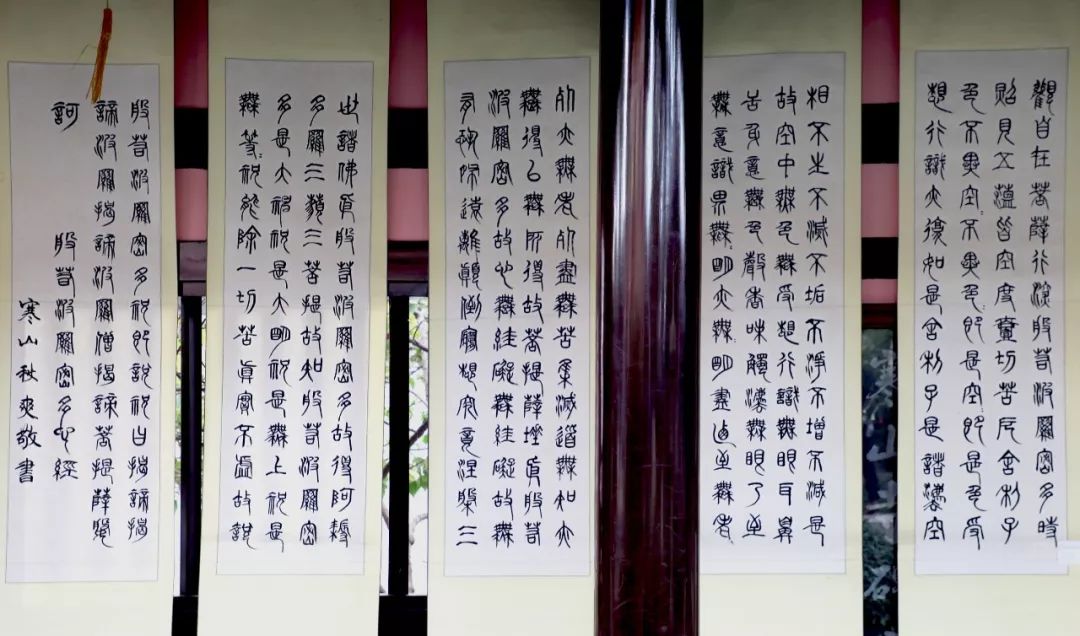 觀自在菩薩行深般若波羅密多時
照見五蘊皆空度壹切苦厄舍利子
色不異空〻不異色〻即是空〻即是色受
想行識亦復如是舍利子是諸法空
相不生不滅不垢不淨不增不減是
故空中無色無受想行識無眼耳鼻
舌身意無色聲香味觸法無眼乃至
無意識界無〻明亦無〻明盡乃至無老
死亦無老死盡無苦集滅道無知亦
無得以無所得故菩提薩埵依般若
波羅密多故心無絓礙無絓礙故無
有恐怖遠離顛倒夢想究竟涅槃三
世諸佛依般若波羅密多故得阿耨
多羅三藐三菩提故知般若波羅密
多是大神祝是大明祝是無上祝是
無等〻祝能除一切苦真實不虛故說
般若波羅密多祝即說祝曰揭諦揭
諦波羅揭諦波羅僧揭諦菩提薩婆
訶 般若波羅密多心經
寒山秋爽敬書
寒山